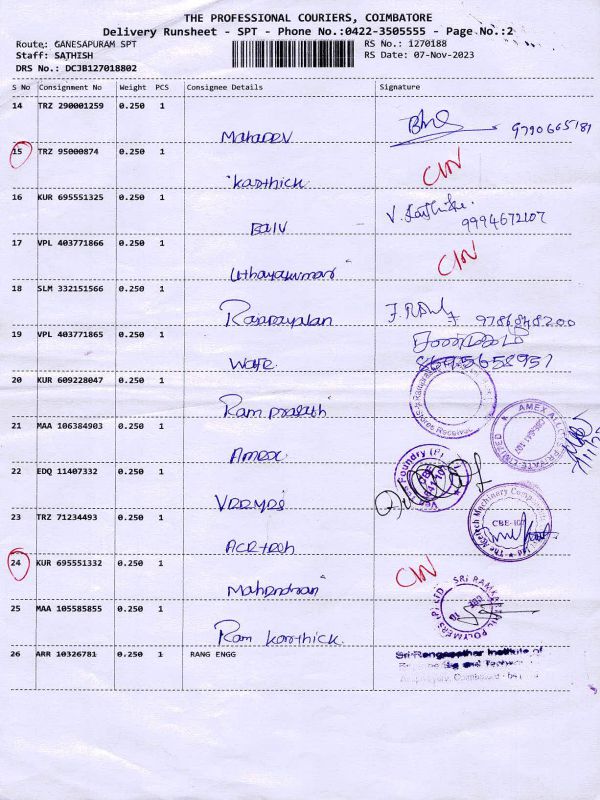 THE PROFESSIONAL COURIERS, COIMBATORE
Delivery Runsheet - SPT - Phone No.:0422-3505555 - Page No.:2
Route: GANESAPURAM SPT
RS No.: 1270188
Staff: SATHISH
RS Date: 07-Nov-2023
DRS No.: DCJB127018802
S No Consignment No Weight PCS Consignee Details Signature
14 TRZ 290001259 0.250 1
Mahadev 9790665181
15 TRZ 95000874 0.250 1 CIN
Karthick
16 KUR 695551325 0.250 1 V.
9994672107
Balu
17 VPL 403771866 0.250 1 CIN
Uthayakumar
18 SLM 332151566 0.250 1
9786848200
19 VPL 403771865 0.250 1
8695658957
20 KUR 609228047 0.250 1
Ram prasath
21 MAA 106384903 0.250 1 AMEX ALLOYS PRIVATE LIMITED
Amex
22 EDQ 11407332 0.250 1 Foundry (P)
23 TRZ 71234493 0.250 1 Machinery
CBE-107
Acetech
24 KUR 695551332 0.250 1 CIN
Mahendran
25 MAA 105585855 0.250 1 SRI POLYMERS (P) LTD
Ram Karthick
26 ARR 10326781 0.250 1 RANG ENGG Sri Ranganathar Institute of